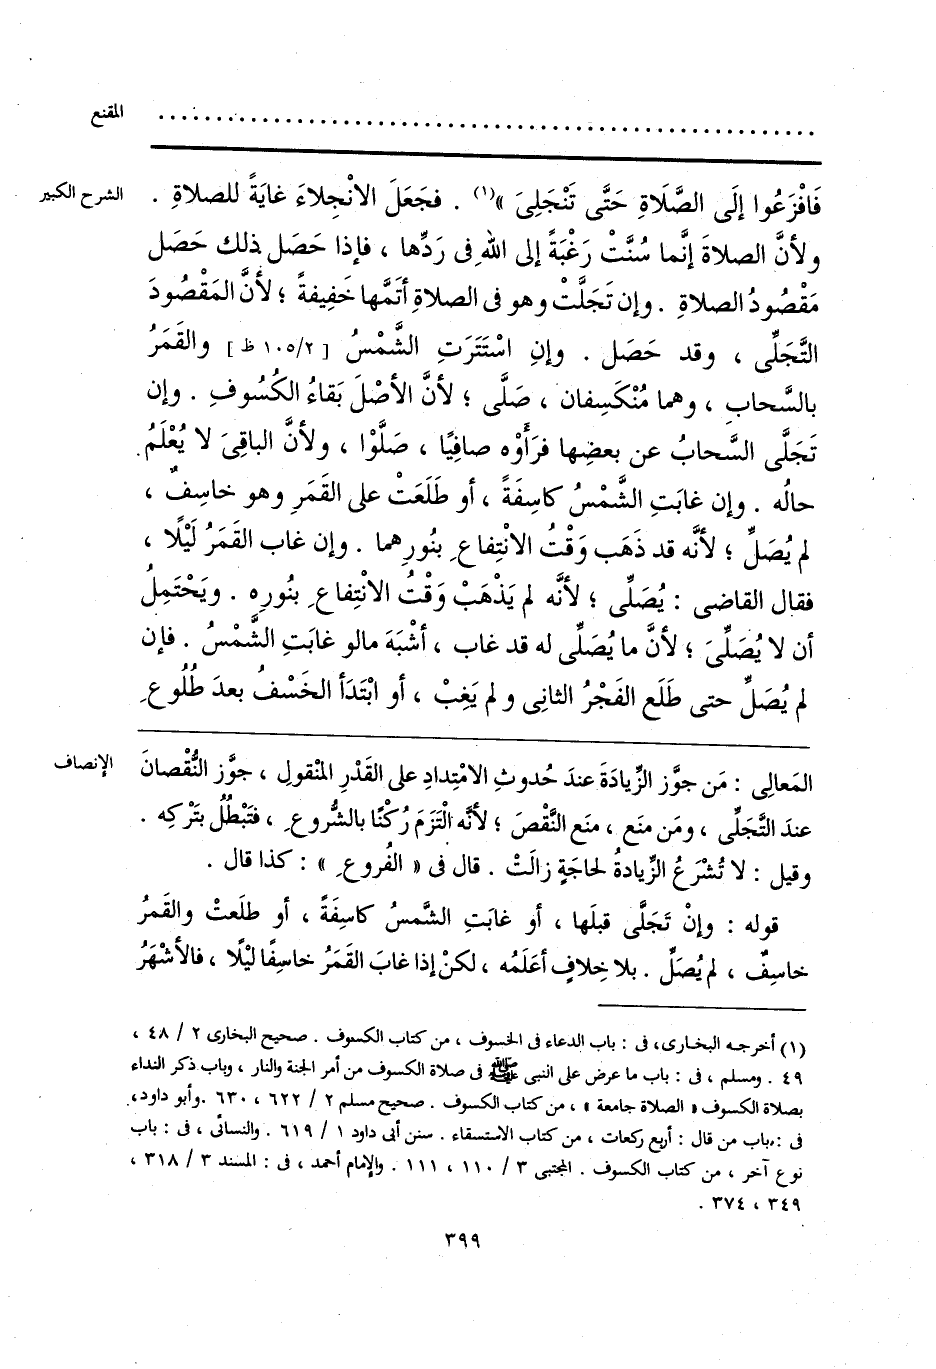 المقنع ................................................................
الشرح الكبير فَافْزَعُوا إلَى الصَّلَاةِ حَتَّى تَنْجَلِىَ »(١) . فجَعَلَ الانْجِلاءَ غايَةً للصلاةِ .
ولأنَّ الصلاةَ إنَّما سُنَّتْ رَغْبَةً إلى اللهِ فى رَدِّها ، فإذا حَصَل ذلك حَصَل
مَقْصُودُ الصلاةِ . وإن تَجَلَّتْ وهو فى الصلاةِ أتَمَّها خَفِيفةً ؛ لأنَّ المَقْصُودَ
التَّجَلِّى ، وقد حَصَل . وإنِ اسْتَتَرَتِ الشَّمْسُ [ ١٠٥/٢ ظ ] والقَمَرُ
بالسَّحابِ ، وهما مُنْكَسِفان ، صَلَّى ؛ لأنَّ الأصْلَ بَقاءُ الكُسُوفِ . وإن
تَجَلَّى السَّحابُ عن بعضِها فرَأَوْه صافِيًا ، صَلَّوْا ، ولأنَّ الباقِىَ لا يُعْلَمُ
حالُه . وإن غابَتِ الشَّمْسُ كاسِفَةً ، أو طَلَعَتْ على القَمَرِ وهو خاسِفٌ ،
لم يُصَلِّ ؛ لأنَّه قد ذَهَب وَقْتُ الانْتِفاعِ بنُورِهما . وإن غاب القَمَرُ لَيْلًا ،
فقال القاضى : يُصَلِّى ؛ لأنَّه لم يَذْهَبْ وَقْتُ الانْتِفاعِ بنُورِه . ويَحْتَمِلُ
أن لا يُصَلِّىَ ؛ لأنَّ ما يُصَلِّى له قد غاب ، أشْبَهَ مالو غابَتِ الشَّمْسُ . فإن
لم يُصَلِّ حتى طَلَع الفَجْرُ الثانِى و لم يَغِبْ ، أو ابْتَدَأ الخَسْفُ بعدَ طُلُوعِ
الإنصاف المَعالِى : مَن جوَّز الزِّيادَةَ عندَ حُدوثِ الامْتِدادِ على القَدْرِ المَنْقولِ ، جوَّز النُّقْصانَ
عندَ التَّجَلِّى ، ومَن منَع ، منَع النَّقْصَ ؛ لأنَّه الْتَزَمَ رُكْنًا بالشُّروعِ ، فتَبْطُلُ بتَرْكِه .
وقيل : لا تُشْرَعُ الزِّيادةُ لحاجَةٍ زالَتْ . قال فى « الفُروعِ » : كذا قال .
قوله : وإنْ تَجَلَّى قبلَها ، أو غابَتِ الشَّمسُ كاسِفَةً ، أو طلَعتْ والقَمرُ
خاسِفٌ ، لم يُصَلِّ . بلا خِلافٍ أعَلَمُه ، لكنْ إذا غابَ القَمَرُ خاسِفًا ليْلًا ، فالأشْهَرُ
(١) أخرجه البخارى، فى : باب الدعاء فى الخسوف ، من كتاب الكسوف . صحيح البخارى ٢ / ٤٨ ،
٤٩ . ومسلم ، فى : باب ما عرض على النبى ﷺ فى صلاة الكسوف من أمر الجنة والنار ، وباب ذكر النداء
بصلاة الكسوف « الصلاة جامعة » ، من كتاب الكسوف . صحيح مسلم ٢ / ٦٢٢ ، ٦٣٠ . وأبو داود،
فى : باب من قال : أربع ركعات ، من كتاب الاستسقاء . سنن أبى داود ١ / ٦١٩ . والنسائى ، فى : باب
نوع آخر ، من كتاب الكسوف . المجتبى ٣ / ١١٠ ، ١١١ . والإمام أحمد ، فى : المسند ٣ / ٣١٨ ،
٣٤٩ ، ٣٧٤ .
٣٩٩